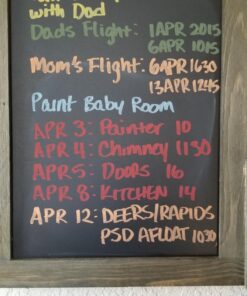 with Dad
Dads Flight: 1APR 2015
6APR 1015
Mom's Flight: 6APR 1630
13APR 1245
Paint Baby Room
APR 3: Painter 10
APR 4: Chimney 1130
APR 5: DOORS 16
APR 8: KITCHEN 14
APR 12: DEERS/RAPIDS
PSD AFLOAT 1030